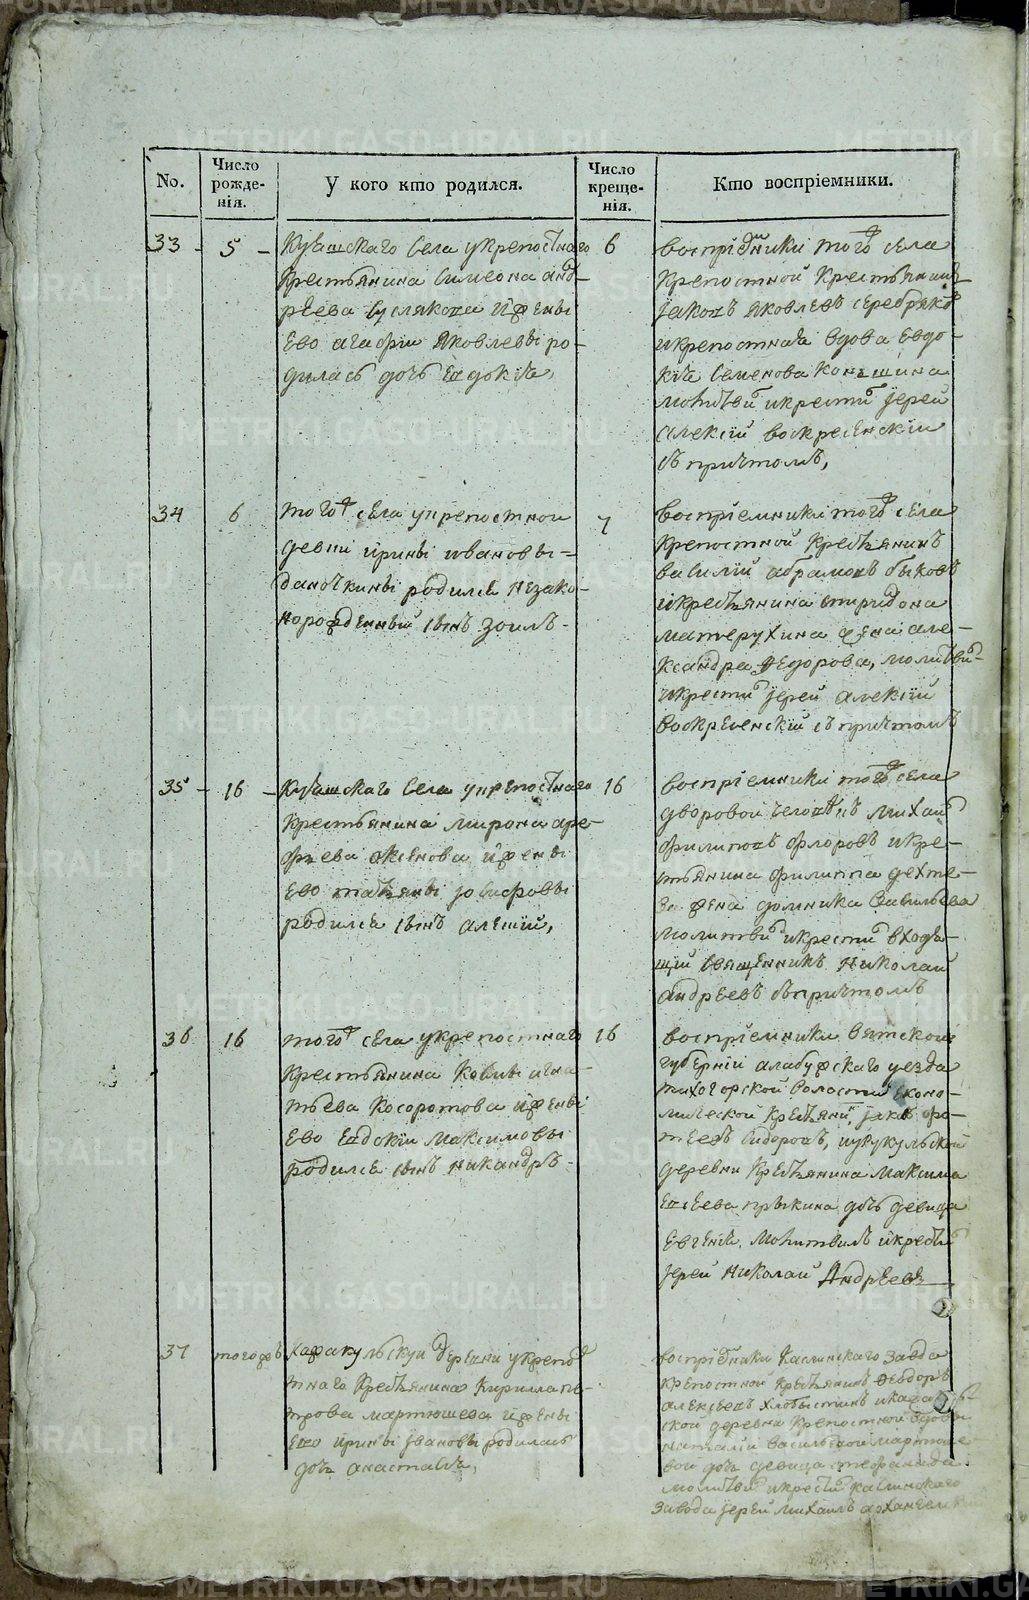 METRIKI.GASO-URAL.RU
No.
Число рожде-нія.
У кого кто родился.
Число креще-нія.
Кто воспріемники.
33 - 5 -
села укрепостнаго
Крестьянина Симеона Анд-
рѣева Суслякова ижены
Ево агафіи Яковлевы ро-
дилась дочь Евдокія,
6
воспріемники тогож села
Крепостной Крестьянинъ
Іаковъ Яковлевъ
икрепостная вдова Евдо-
кія Семенова Коншина
молитвил икрестил Іерей
Алексій воскресенскій
съ причтомъ,
34 6
тогож села укрепостной
девки ирины ивановы
родился незако-
норожденный сынъ зоилъ -
7
воспріемники тогож села
крепостной крестьянинъ
василій абрамовъ быковъ
икрестьянина спиридона
матерухина жена але-
ксандра Федорова, молитвил
икрестил Іерей алексій
воскресенскій съ причтомъ
35 - 16 -
села укрепостнаго
крестьянина мирона аре-
фьева ижены
Ево татьяны
родился сынъ алексій,
16
воспріемники тогож села
дворовой человѣкъ михаил
филиповъ флоровъ икре-
стьянина филиппа дехте-
жена домника Савильева
молитвил икрестил входя-
щій Священникъ Николай
Андреевъ съпричтомъ
36 16
тогож села укрепостнаго
крестьянина игна-
тьева Косоротова ижены
Ево Евдокіи Максимовы
родился сынъ никандръ -
16
воспріемники вятской
губерніи алабужскаго уезда
волости Еконо-
мической Іаковъ
Сидоровъ,
деревни крестьянина максима
Евсеева дочь девица
Евгенія. молитвилъ икрестил
Іерей Николай Андреевъ
37 тогожъ
деревни укрепос-
тнаго крестьянина Кирилла пе-
трова мартюшева ижены
Ево ирины Ивановы родилась
дочь анастасія,
воспріемники Каслинскаго завода
крепостной крестьянинъ Феодоръ
алексѣевъ Хлобыстинъ
ской деревни крепостной вдовы
наталіи васильевой мартюше-
вой дочь девица стефанида
молитвил икрестил каслинскаго
завода Іерей михаилъ